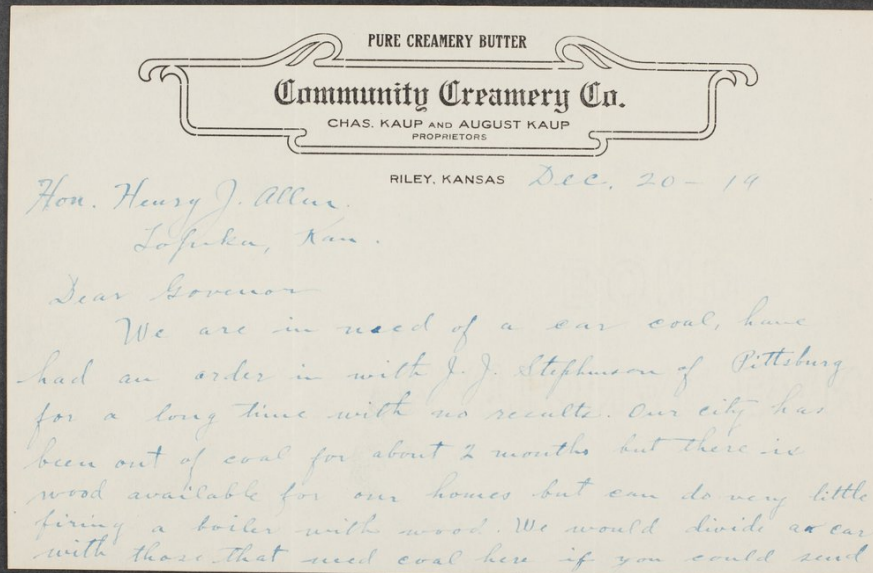 PURE CREAMERY BUTTER
Community Creamery Co.
CHAS. KAUP AND AUGUST KAUP
PROPRIETORS
RILEY, KANSAS Dec. 20 - 19
Hon. Henry J. Allen.
Topeka, Kan.
Dear Govenor
We are in need of a car coal, have
had an order in with J. J. Stephenson of Pittsburg
for a long time with no results. Our city has
been out of coal for about 2 months but there is
wood available for our homes but can do very little
firing a boiler with wood. We would divide a car
with those that need coal here if you could send